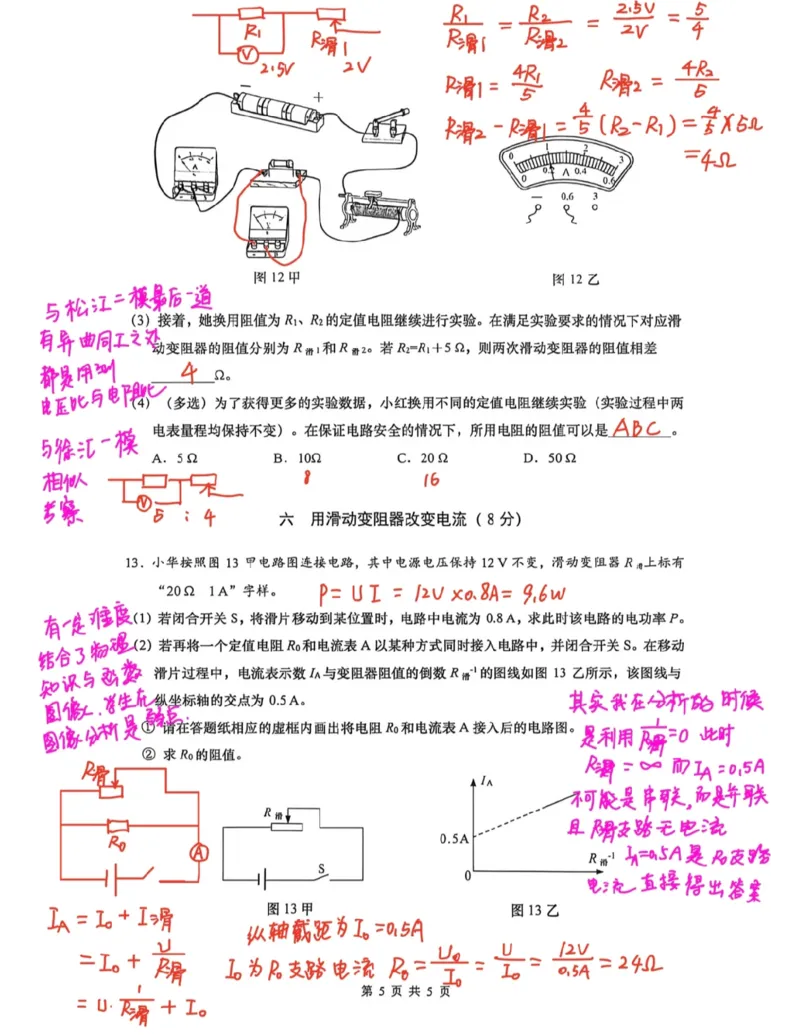 R₁
V
2.5V
R滑1
2V
R₁/R滑1 = R₂/R滑2 = 2.5V/2V = 5/4
R滑1 = 4R₁/5  R滑2 = 4R₂/5
R滑2 - R滑1 = 4/5 (R₂-R₁) = 4/5 × 5Ω
= 4Ω
− +
0 1 2 3
0 0.2 A 0.4 0.6
− 0.6 3
图 12 甲 图 12 乙
与松江二模最后一道
有异曲同工之处
都是用到
电压比与电阻比
(3) 接着，她换用阻值为 R₁、R₂的定值电阻继续进行实验。在满足实验要求的情况下对应滑
动变阻器的阻值分别为 R滑1和 R滑2。若 R₂=R₁+5 Ω，则两次滑动变阻器的阻值相差
4 Ω。
(4) （多选）为了获得更多的实验数据，小红换用不同的定值电阻继续实验（实验过程中两
电表量程均保持不变）。在保证电路安全的情况下，所用电阻的阻值可以是 ABC 。
A．5 Ω B．10Ω C．20 Ω D．50 Ω
8 16
与徐汇一模
相似
考察
V
5 : 4
六 用滑动变阻器改变电流（8 分）
13．小华按照图 13 甲电路图连接电路，其中电源电压保持 12 V 不变，滑动变阻器 R滑上标有
“20 Ω 1 A”字样。
P = UI = 12V × 0.8A = 9.6W
(1) 若闭合开关 S，将滑片移动到某位置时，电路中电流为 0.8 A，求此时该电路的电功率 P。
(2) 若再将一个定值电阻 R₀和电流表 A 以某种方式同时接入电路中，并闭合开关 S。在移动
滑片过程中，电流表示数 I_A与变阻器阻值的倒数 R滑⁻¹的图线如图 13 乙所示，该图线与
纵坐标轴的交点为 0.5 A。
① 请在答题纸相应的虚框内画出将电阻 R₀和电流表 A 接入后的电路图。
② 求 R₀的阻值。
有一定难度
结合了物理
知识与函数
图像，学生在
图像分析是弱点.
其实我在分析的时候
是利用 1/R滑=0 此时
R滑=∞ 而I_A=0.5A
不可能是串联，而是并联
且R滑支路无电流
I_A=0.5A是R₀支路
电流 直接得出答案
R滑
R₀
A
R滑
S
I_A
0.5A
0
R滑⁻¹
图 13 甲 图 13 乙
I_A = I₀ + I滑
= I₀ + U/R滑
= U·1/R滑 + I₀
纵轴截距为I₀=0.5A
I₀为R₀支路电流 R₀ = U₀/I₀ = U/I₀ = 12V/0.5A = 24Ω
第 5 页 共 5 页